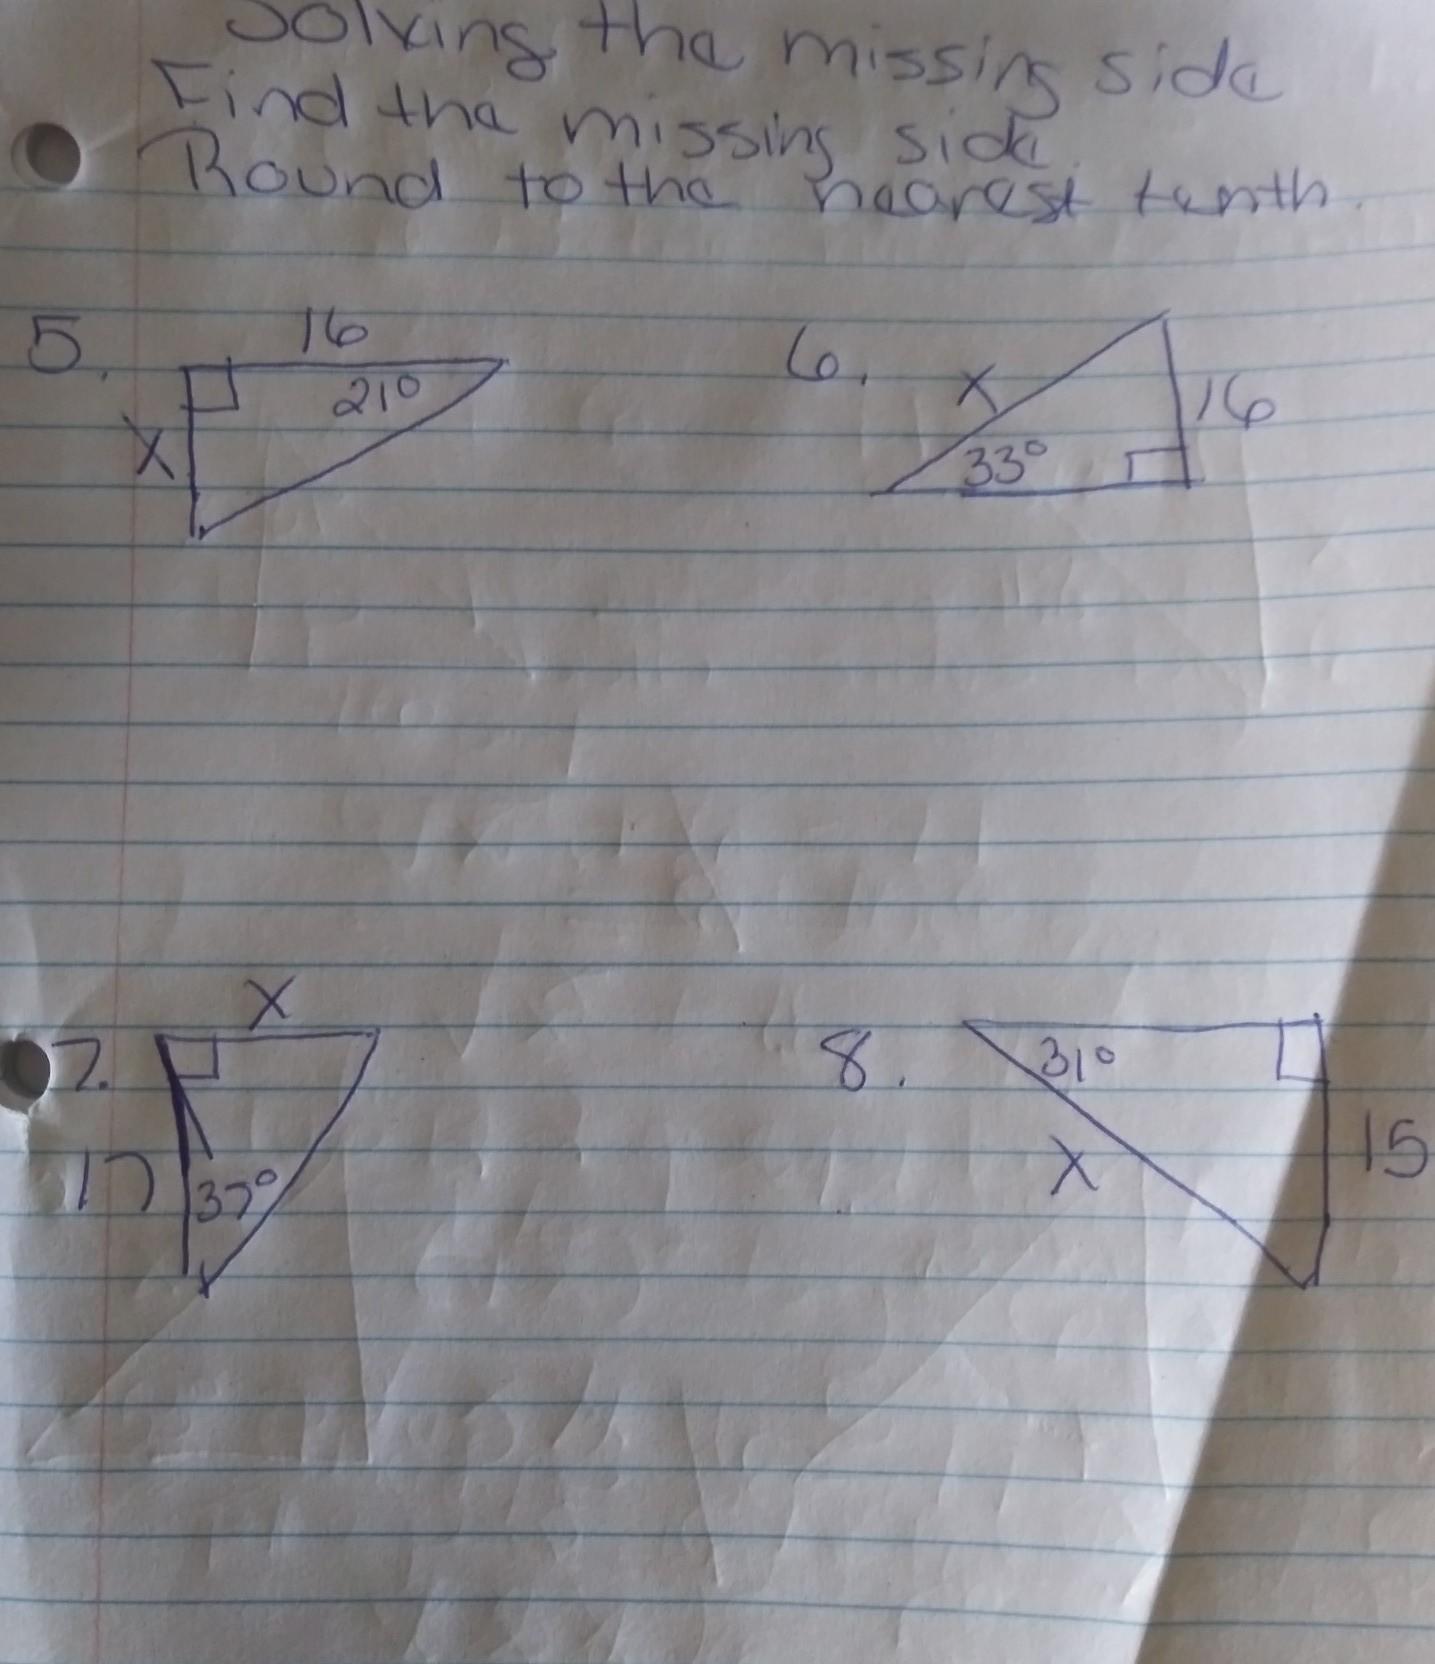 Solving the missing side
Find the missing side.
Round to the nearest tenth.
5. 16 21° X
6. X 33° 16
7. X 17 37°
8. 31° X 15